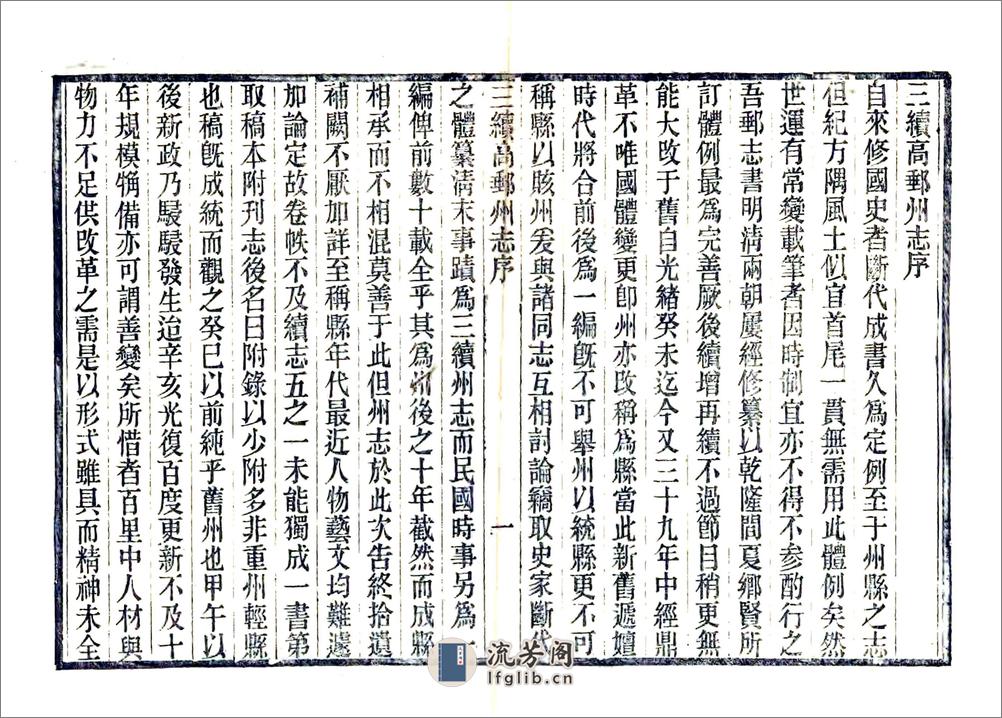 三續高郵州志序
自來修國史者斷代成書久爲定例至于州縣之志
但紀方隅風土似宜首尾一貫無需用此體例矣然
世運有常變載筆者因時制宜亦不得不參酌行之
吾郵志書明淸兩朝屢經修纂以乾隆間夏鄕賢所
訂體例最爲完善厥後續增再續不過節目稍更無
能大改于舊自光緖癸未迄今又三十九年中經鼎
革不唯國體變更卽州亦改稱爲縣當此新舊遞嬗
時代將合前後爲一編旣不可舉州以統縣更不可
稱縣以賅州爰與諸同志互相討論竊取史家斷代
三續高郵州志序
一
之體纂淸末事蹟爲三續州志而民國時事另爲一
編俾前數十載全乎其爲州後之十年截然而成縣
相承而不相混莫善于此但州志於此次告終拾遺
補闕不厭加詳至稱縣年代最近人物藝文均難遽
加論定故卷帙不及續志五之一未能獨成一書第
取稿本附刊志後名曰附錄以少附多非重州輕縣
也稿旣成統而觀之癸巳以前純乎舊州也甲午以
後新政乃駸駸發生迨辛亥光復百度更新不及十
年規模犕備亦可謂善變矣所惜者百里中人材與
物力不足供改革之需是以形式雖具而精神未全
流芳阁
lfglib.cn